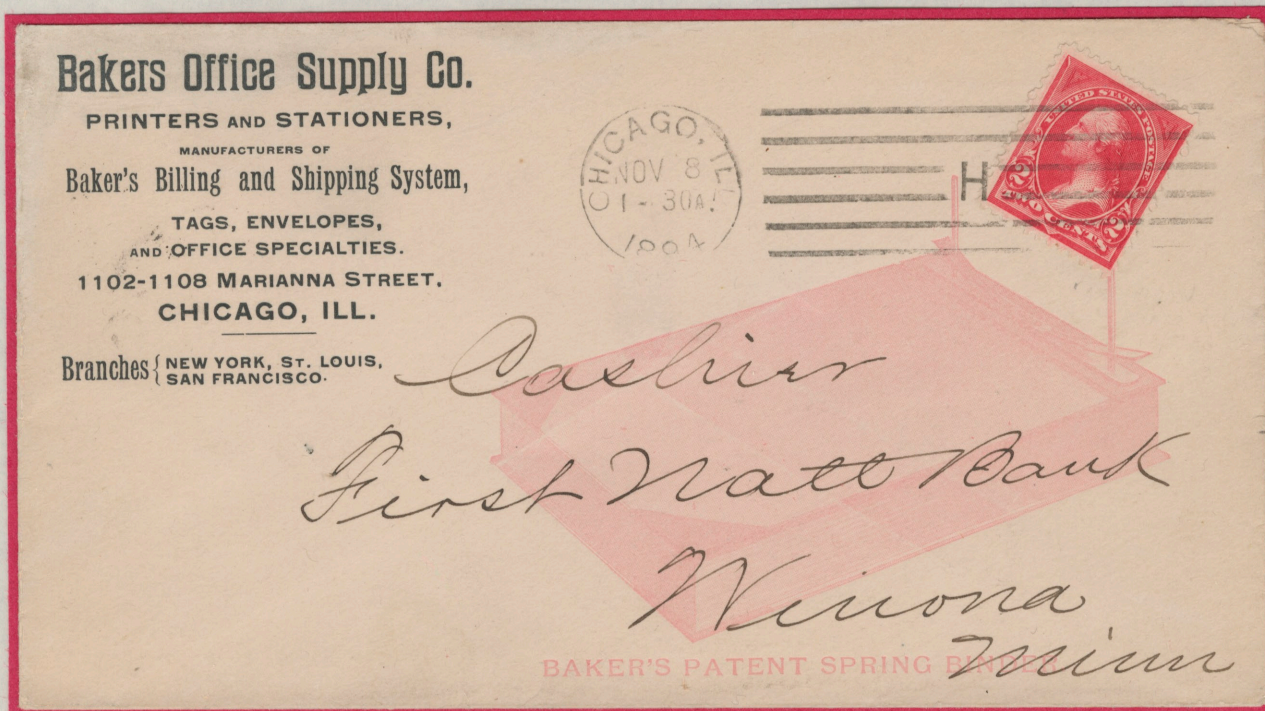 Bakers Office Supply Co.
PRINTERS AND STATIONERS,
MANUFACTURERS OF
Baker's Billing and Shipping System,
TAGS, ENVELOPES,
AND OFFICE SPECIALTIES.
1102-1108 MARIANNA STREET.
CHICAGO, ILL.
Branches { NEW YORK, ST. LOUIS,
SAN FRANCISCO.
CHICAGO, ILL
NOV 8
1-30A.
1894
H
UNITED STATES POSTAGE
2 TWO CENTS 2
Cashier
First Natl Bank
Winona
Minn
BAKER'S PATENT SPRING BINDER